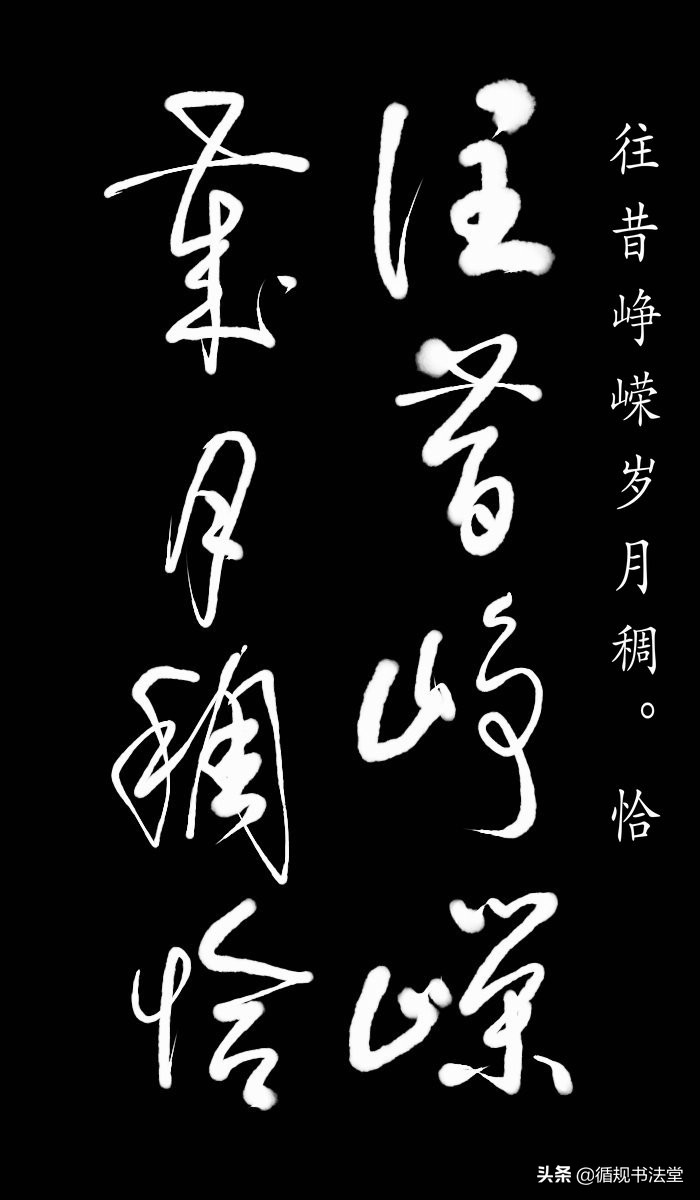 往昔峥嵘岁月稠。 恰
往昔峥嵘
岁月稠恰
头条 @循规书法堂